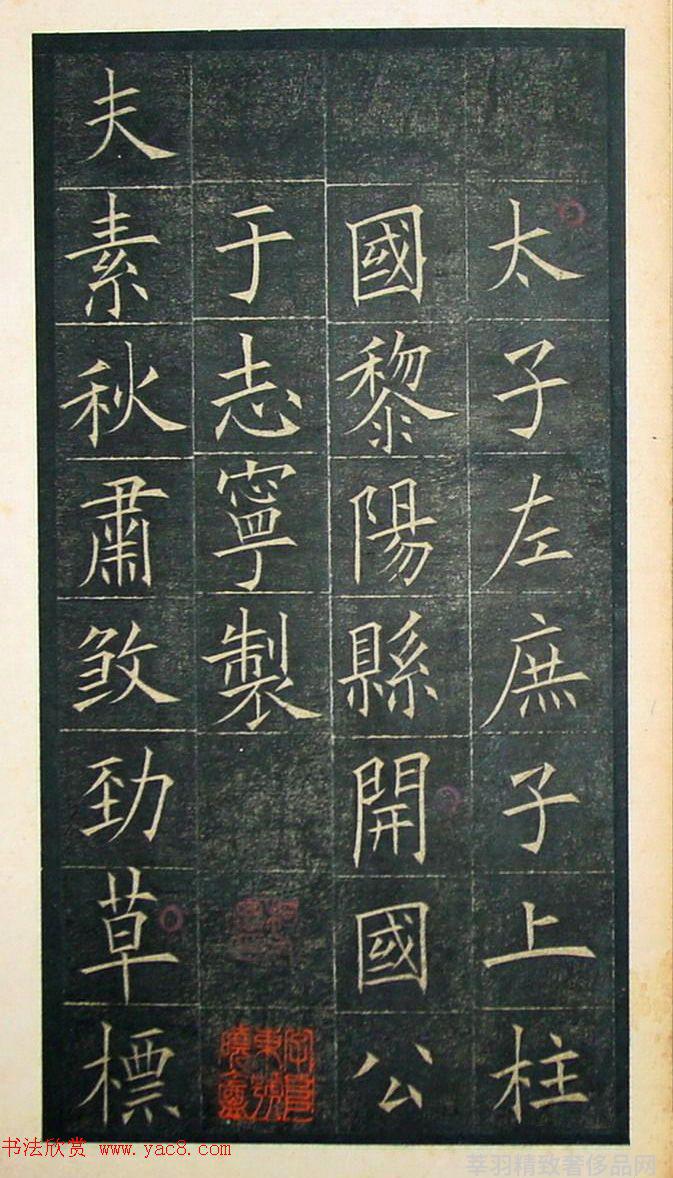 太子左庶子上柱
國黎陽縣開國公
于志寧製
夫素秋肅煞勁草標
书法欣赏 www.yac8.com
莘羽精致奢侈品网